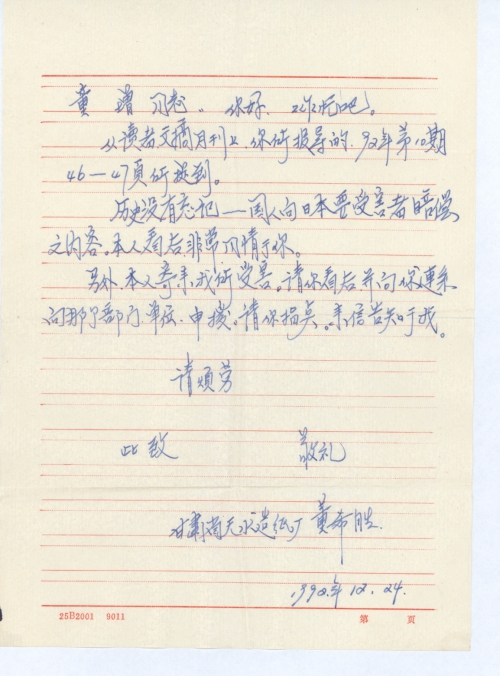 童增同志。你好、近况吧。
从读者文摘月刊上、你所报导的、92年第11期
46—47页所谈到。
历史没有忘记——国人向日本要受害者赔偿
之内容。本人看后、非常同情于你。
另外、本人寄来我所受害。请你看后并向你连系
向那个部门、单位、申按。请你指点。来信告知于我。
请烦劳
此致 敬礼
甘肃省天水造纸厂 黄希胜
1992年12.24.
25B2001 9011 第 页